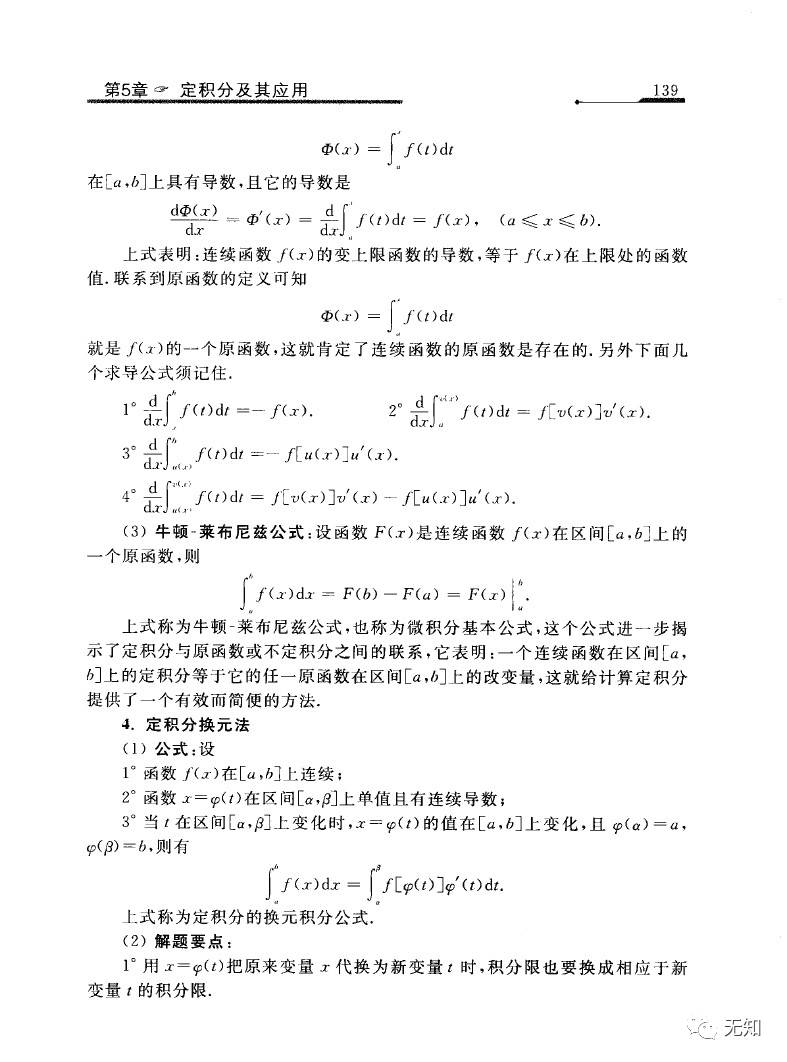 第5章 ☞ 定积分及其应用 139
Φ(x) = ∫ₐˣ f(t)dt
在[a,b]上具有导数,且它的导数是
dΦ(x)/dx = Φ′(x) = d/dx ∫ₐˣ f(t)dt = f(x), (a ⩽ x ⩽ b).
上式表明:连续函数 f(x)的变上限函数的导数,等于 f(x)在上限处的函数
值.联系到原函数的定义可知
Φ(x) = ∫ₐˣ f(t)dt
就是 f(x)的一个原函数,这就肯定了连续函数的原函数是存在的.另外下面几
个求导公式须记住.
1° d/dx ∫ₓᵇ f(t)dt =− f(x). 2° d/dx ∫ₐ^{v(x)} f(t)dt = f[v(x)]v′(x).
3° d/dx ∫_{u(x)}^b f(t)dt =− f[u(x)]u′(x).
4° d/dx ∫_{u(x)}^{v(x)} f(t)dt = f[v(x)]v′(x) − f[u(x)]u′(x).
(3) 牛顿-莱布尼兹公式:设函数 F(x)是连续函数 f(x)在区间[a,b]上的
一个原函数,则
∫ₐᵇ f(x)dx = F(b) − F(a) = F(x)|ₐᵇ.
上式称为牛顿-莱布尼兹公式,也称为微积分基本公式,这个公式进一步揭
示了定积分与原函数或不定积分之间的联系,它表明:一个连续函数在区间[a,
b]上的定积分等于它的任一原函数在区间[a,b]上的改变量,这就给计算定积分
提供了一个有效而简便的方法.
4. 定积分换元法
(1) 公式:设
1° 函数 f(x)在[a,b]上连续;
2° 函数 x=φ(t)在区间[α,β]上单值且有连续导数;
3° 当 t 在区间[α,β]上变化时,x=φ(t)的值在[a,b]上变化,且 φ(α)=a,
φ(β)=b,则有
∫ₐᵇ f(x)dx = ∫_α^β f[φ(t)]φ′(t)dt.
上式称为定积分的换元积分公式.
(2) 解题要点:
1° 用 x=φ(t)把原来变量 x 代换为新变量 t 时,积分限也要换成相应于新
变量 t 的积分限.
无知